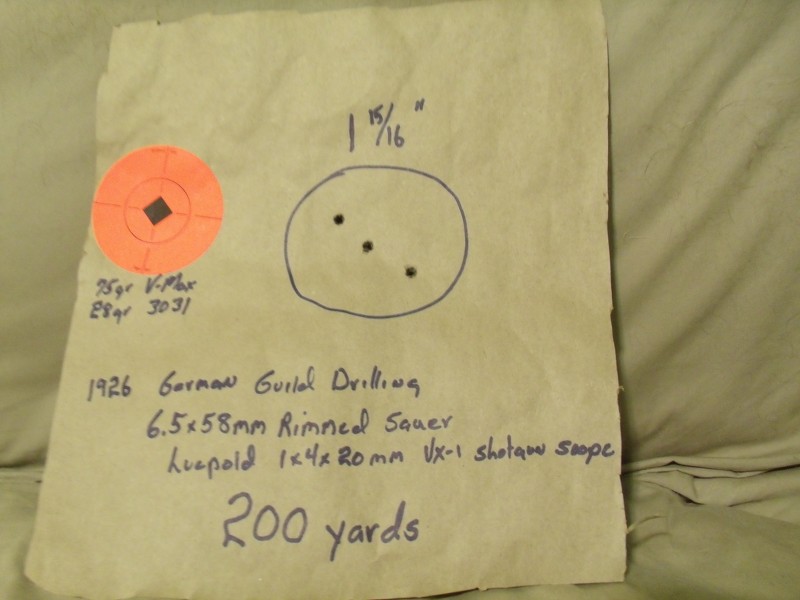 1 15/16"
95gr V-Max
28gr 3031
1926 German Guild Drilling
6.5x58mm Rimmed Sauer
Luepold 1x4x20mm VX-1 shotgun scope
200 yards